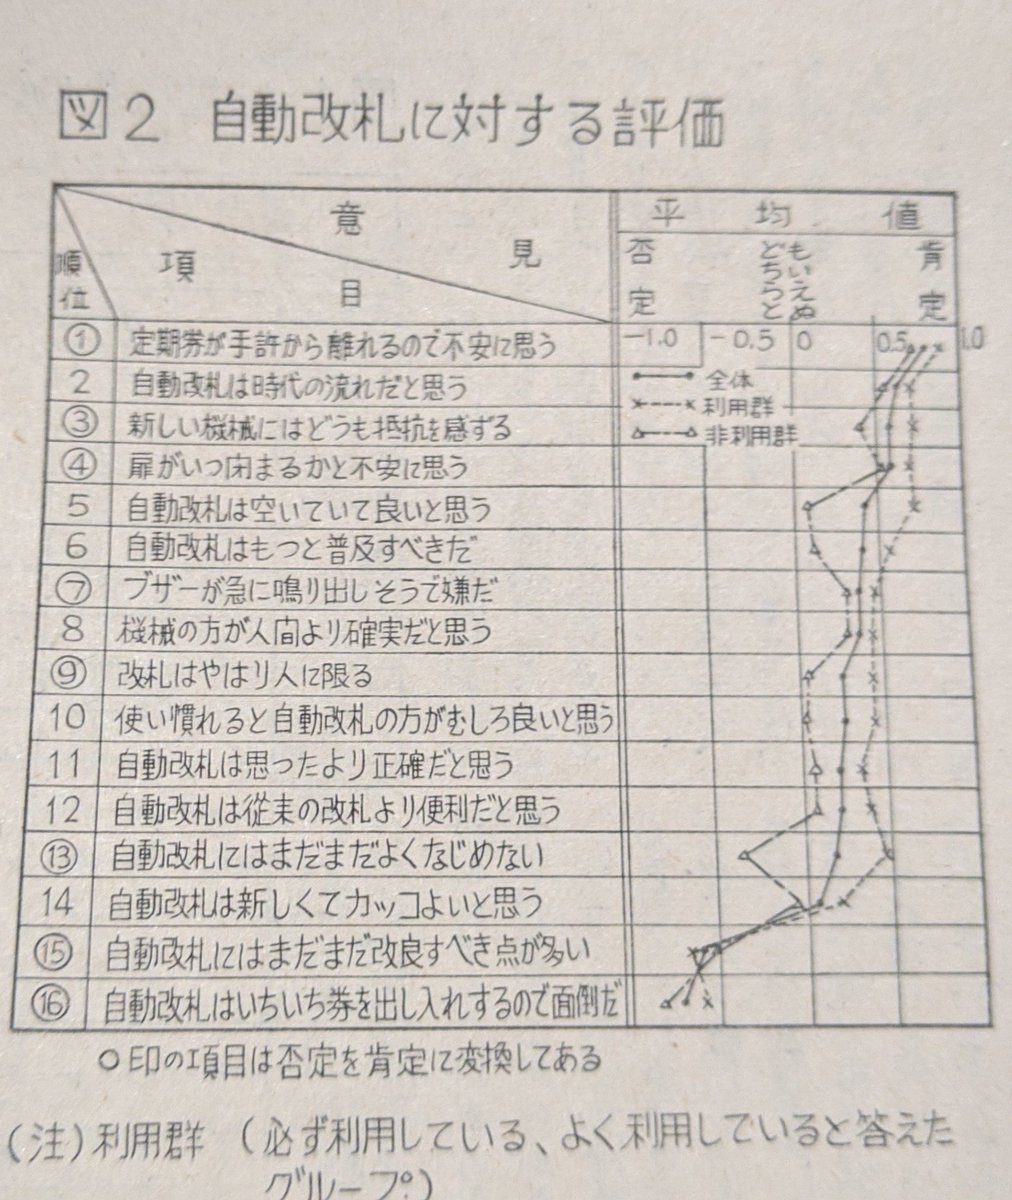 図2 自動改札に対する評価
順位 項目 意見 平均値
否定 どちらともいえぬ 肯定
-1.0 -0.5 0 0.5 1.0
① 定期券が手許から離れるので不安に思う
2 自動改札は時代の流れだと思う
③ 新しい機械にはどうも抵抗を感ずる
④ 扉がいつ閉まるかと不安に思う
5 自動改札は空いていて良いと思う
6 自動改札はもつと普及すべきだ
⑦ ブザーが急に鳴り出しそうで嫌だ
8 機械の方が人間より確実だと思う
⑨ 改札はやはり人に限る
10 使い慣れると自動改札の方がむしろ良いと思う
11 自動改札は思ったより正確だと思う
12 自動改札は従来の改札より便利だと思う
⑬ 自動改札にはまだまだよくなじめない
14 自動改札は新しくてカッコよいと思う
⑮ 自動改札にはまだまだ改良すべき点が多い
⑯ 自動改札はいちいち券を出し入れするので面倒だ
全体
利用群
非利用群
○印の項目は否定を肯定に変換してある
(注)利用群 (必ず利用している、よく利用していると答えた
グループ)